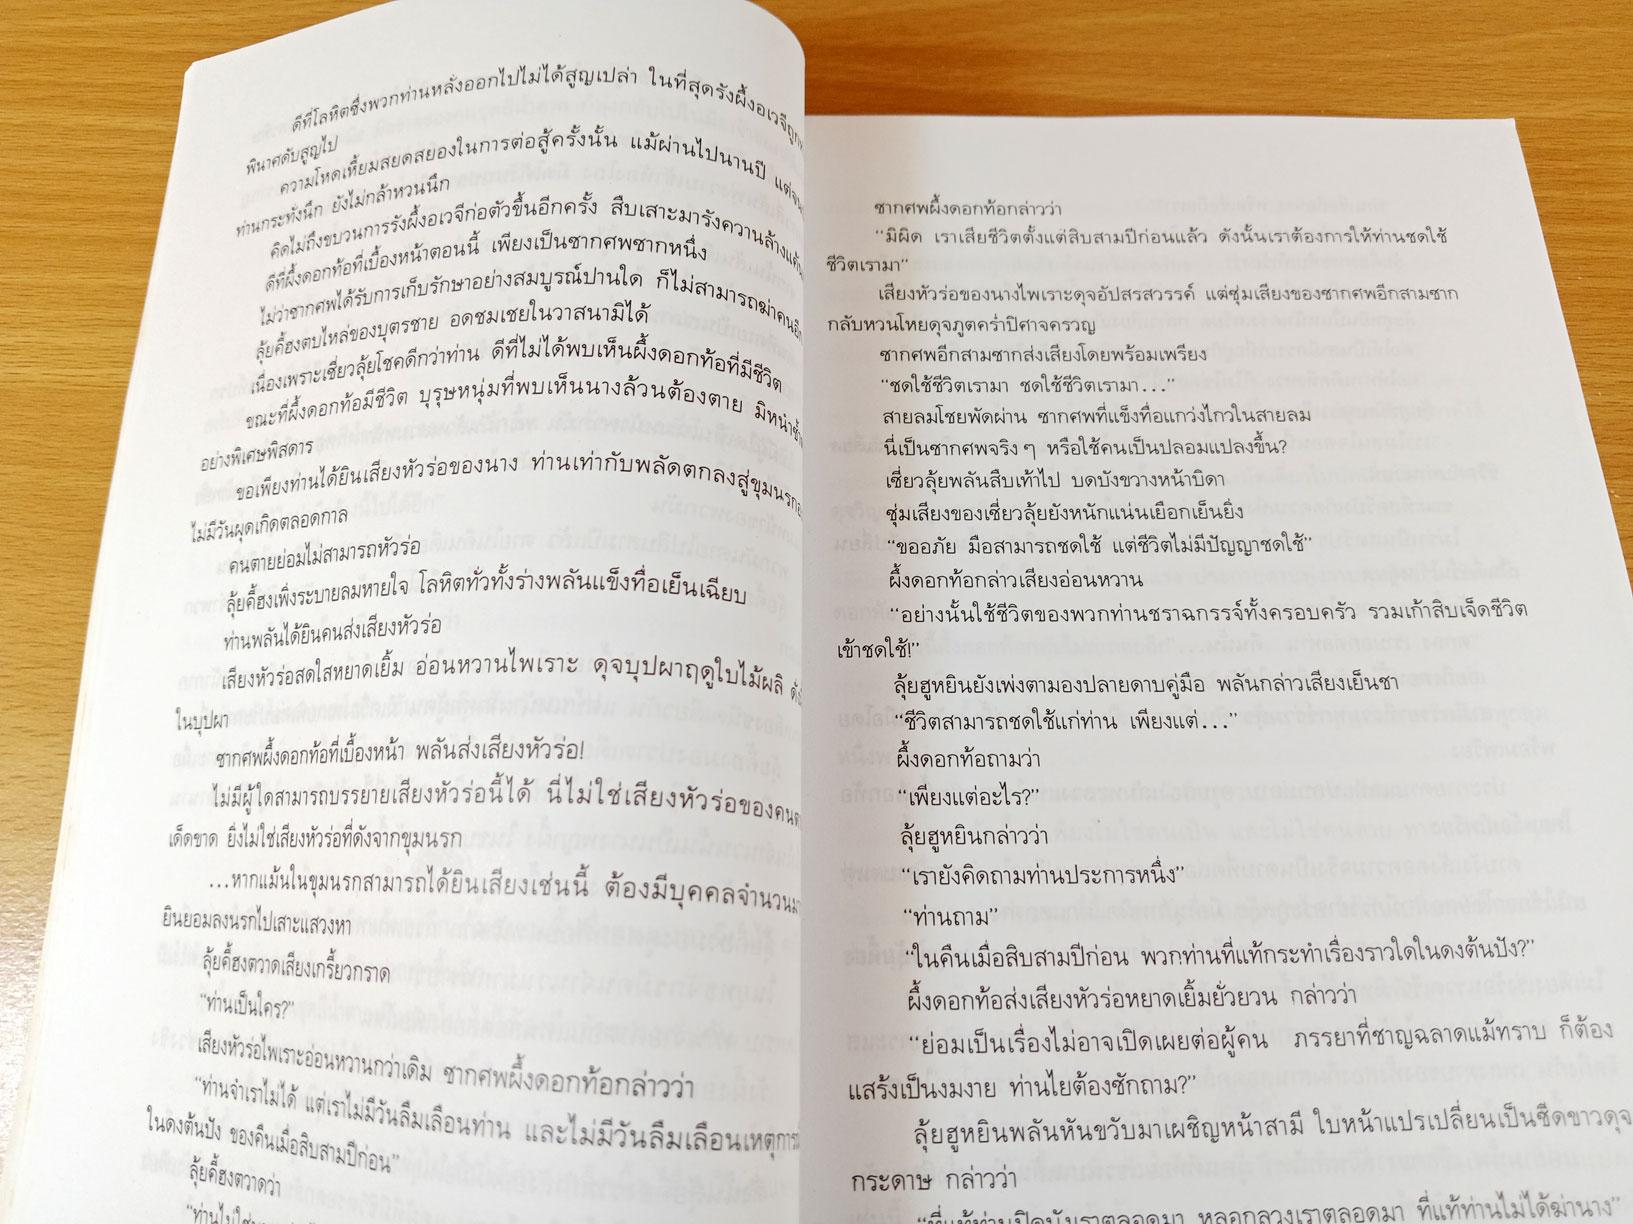 ดีที่โลหิตซึ่งพวกท่านหลั่งออกไปไม่ได้สูญเปล่า ในที่สุดรังผึ้งอเวจีถูก
พินาศดับสูญไป
ความโหดเหี้ยมสยดสยองในการต่อสู้ครั้งนั้น แม้ผ่านไปนานปี
ท่านกระทั่งนึก ยังไม่กล้าหวนนึก
คิดไม่ถึงขบวนการรังผึ้งอเวจีก่อตัวขึ้นอีกครั้ง สืบเสาะมารังควานล้างแค้น
ดีที่ผึ้งดอกท้อที่เบื้องหน้าตอนนี้ เพียงเป็นซากศพซากหนึ่ง
ไม่ว่าซากศพได้รับการเก็บรักษาอย่างสมบูรณ์ปานใด ก็ไม่สามารถฆ่าคน
ลุ้ยคี้ฮงตบไหล่ของบุตรชาย อดชมเชยในวาสนามิได้
เนื่องเพราะเซี่ยวลุ้ยโชคดีกว่าท่าน ดีที่ไม่ได้พบเห็นผึ้งดอกท้อที่มีชีวิต
ขณะที่ผึ้งดอกท้อมีชีวิต บุรุษหนุ่มที่พบเห็นนางล้วนต้องตาย มิหนำซ้ำ
อย่างพิเศษพิสดาร
ขอเพียงท่านได้ยินเสียงหัวร่อของนาง ท่านเท่ากับพลัดตกลงสู่ขุมนรก
ไม่มีวันผุดเกิดตลอดกาล
คนตายย่อมไม่สามารถหัวร่อ
ลุ้ยคี้ฮงเพิ่งระบายลมหายใจ โลหิตทั่วทั้งร่างพลันแข็งทื่อเย็นเฉียบ
ท่านพลันได้ยินคนส่งเสียงหัวร่อ
เสียงหัวร่อสดใสหยาดเยิ้ม อ่อนหวานไพเราะ ดุจบุปผาฤดูใบไม้ผลิ
ในบุปผา
ซากศพผึ้งดอกท้อที่เบื้องหน้า พลันส่งเสียงหัวร่อ!
ไม่มีผู้ใดสามารถบรรยายเสียงหัวร่อนี้ได้ นี่ไม่ใช่เสียงหัวร่อของคน
เด็ดขาด ยิ่งไม่ใช่เสียงหัวร่อที่ดังจากขุมนรก
...หากแม้นในขุมนรกสามารถได้ยินเสียงเช่นนี้ ต้องมีบุคคลจำนวน
ยินยอมลงนรกไปเสาะแสวงหา
ลุ้ยคี้ฮงตวาดเสียงเกรี้ยวกราด
“ท่านเป็นใคร?”
เสียงหัวร่อไพเราะอ่อนหวานกว่าเดิม ซากศพผึ้งดอกท้อกล่าวว่า
“ท่านจำเราไม่ได้ แต่เราไม่มีวันลืมเลือนท่าน และไม่มีวันลืมเลือนเหตุการ
ในดงต้นปัง ของคืนเมื่อสิบสามปีก่อน”
ลุ้ยคี้ฮงตวาดว่า
ซากศพผึ้งดอกท้อกล่าวว่า
“มิผิด เราเสียชีวิตตั้งแต่สิบสามปีก่อนแล้ว ดังนั้นเราต้องการให้ท่านชดใช้
ชีวิตเรามา”
เสียงหัวร่อของนางไพเราะดุจอัปสรสวรรค์ แต่ซุ่มเสียงของซากศพอีกสามซาก
กลับหวนโหยดุจภูตคร่ำปิศาจครวญ
ซากศพอีกสามซากส่งเสียงโดยพร้อมเพรียง
“ชดใช้ชีวิตเรามา ชดใช้ชีวิตเรามา...”
สายลมโชยพัดผ่าน ซากศพที่แข็งทื่อแกว่งไกวในสายลม
นี่เป็นซากศพจริงๆ หรือใช้คนเป็นปลอมแปลงขึ้น?
เซี่ยวลุ้ยพลันสืบเท้าไป บดบังขวางหน้าบิดา
ซุ่มเสียงของเซี่ยวลุ้ยยังหนักแน่นเยือกเย็นยิ่ง
“ขออภัย มือสามารถชดใช้ แต่ชีวิตไม่มีปัญญาชดใช้”
ผึ้งดอกท้อกล่าวเสียงอ่อนหวาน
“อย่างนั้นใช้ชีวิตของพวกท่านชราฉกรรจ์ทั้งครอบครัว รวมเก้าสิบเจ็ดชีวิต
เข้าชดใช้!”
ลุ้ยฮูหยินยังเพ่งตามองปลายดาบคู่มือ พลันกล่าวเสียงเย็นชา
“ชีวิตสามารถชดใช้แก่ท่าน เพียงแต่...”
ผึ้งดอกท้อถามว่า
“เพียงแต่อะไร?”
ลุ้ยฮูหยินกล่าวว่า
“เรายังคิดถามท่านประการหนึ่ง”
“ท่านถาม”
“ในคืนเมื่อสิบสามปีก่อน พวกท่านที่แท้กระทำเรื่องราวใดในดงต้นปัง?”
ผึ้งดอกท้อส่งเสียงหัวร่อหยาดเยิ้มยั่วยวน กล่าวว่า
“ย่อมเป็นเรื่องไม่อาจเปิดเผยต่อผู้คน ภรรยาที่ชาญฉลาดแม้ทราบ ก็ต้อง
แสร้งเป็นงมงาย ท่านไยต้องซักถาม?”
ลุ้ยฮูหยินพลันหันขวับมาเผชิญหน้าสามี ใบหน้าแปรเปลี่ยนเป็นซีดขาวดุจ
กระดาษ กล่าวว่า
“ที่แท้ท่านปิดบังเราตลอดมา หลอกลวงเราตลอดมา ที่แท้ท่านไม่ได้ฆ่านาง”